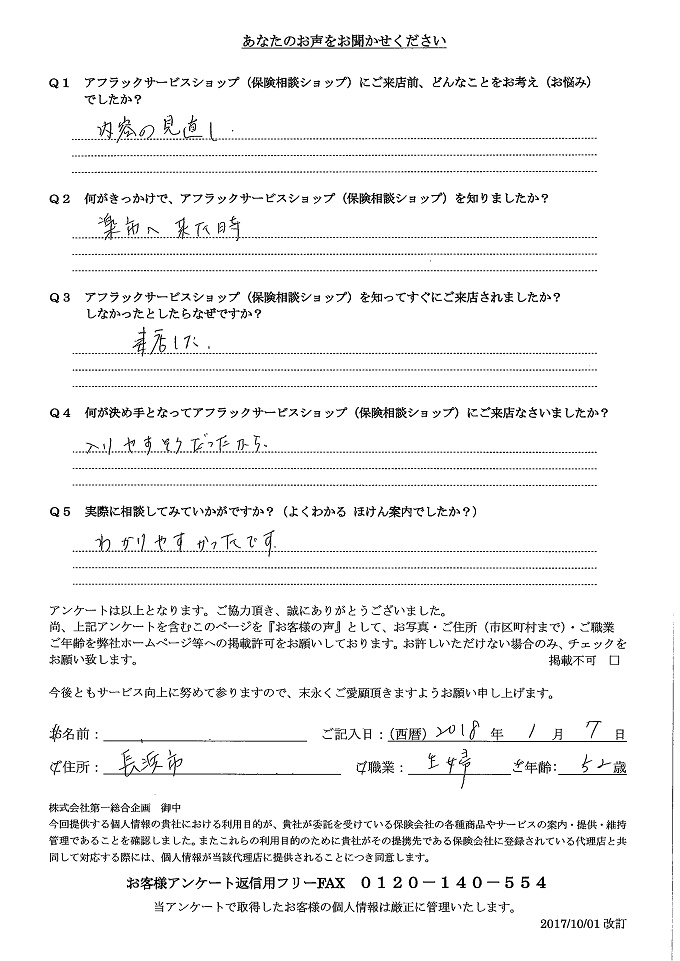 あなたのお声をお聞かせください
Q1 アフラックサービスショップ（保険相談ショップ）にご来店前、どんなことをお考え（お悩み）
でしたか？
内容の見直し.
Q2 何がきっかけで、アフラックサービスショップ（保険相談ショップ）を知りましたか？
楽市へ来た時
Q3 アフラックサービスショップ（保険相談ショップ）を知ってすぐにご来店されましたか？
しなかったとしたらなぜですか？
来店した.
Q4 何が決め手となってアフラックサービスショップ（保険相談ショップ）にご来店なさいましたか？
入りやすそうだったから、
Q5 実際に相談してみていかがですか？（よくわかる ほけん案内でしたか？）
わかりやすかったです.
アンケートは以上となります。ご協力頂き、誠にありがとうございました。
尚、上記アンケートを含むこのページを『お客様の声』として、お写真・ご住所（市区町村まで）・ご職業
ご年齢を弊社ホームページ等への掲載許可をお願いしております。お許しいただけない場合のみ、チェックを
お願い致します。 掲載不可 □
今後ともサービス向上に努めて参りますので、末永くご愛顧頂きますようお願い申し上げます。
お名前： ご記入日：（西暦）2018 年 1 月 7 日
ご住所： 長浜市 ご職業： 主婦 ご年齢： 52 歳
株式会社第一総合企画 御中
今回提供する個人情報の貴社における利用目的が、貴社が委託を受けている保険会社の各種商品やサービスの案内・提供・維持
管理であることを確認しました。またこれらの利用目的のために貴社がその提携先である保険会社に登録されている代理店と共
同して対応する際には、個人情報が当該代理店に提供されることにつき同意します。
お客様アンケート返信用フリーFAX 0120－140－554
当アンケートで取得したお客様の個人情報は厳正に管理いたします。
2017/10/01 改訂